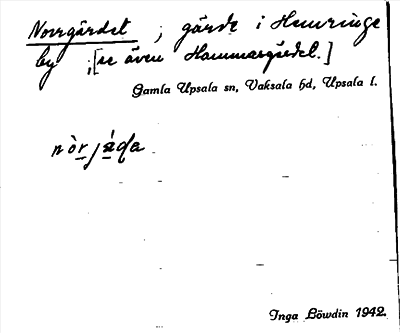 Norrgärdet ; gärde i Hemringe
by ; [se även Hammargärdet.]
Gamla Upsala sn, Vaksala hd, Upsala l.
Inga Löwdin 1942.